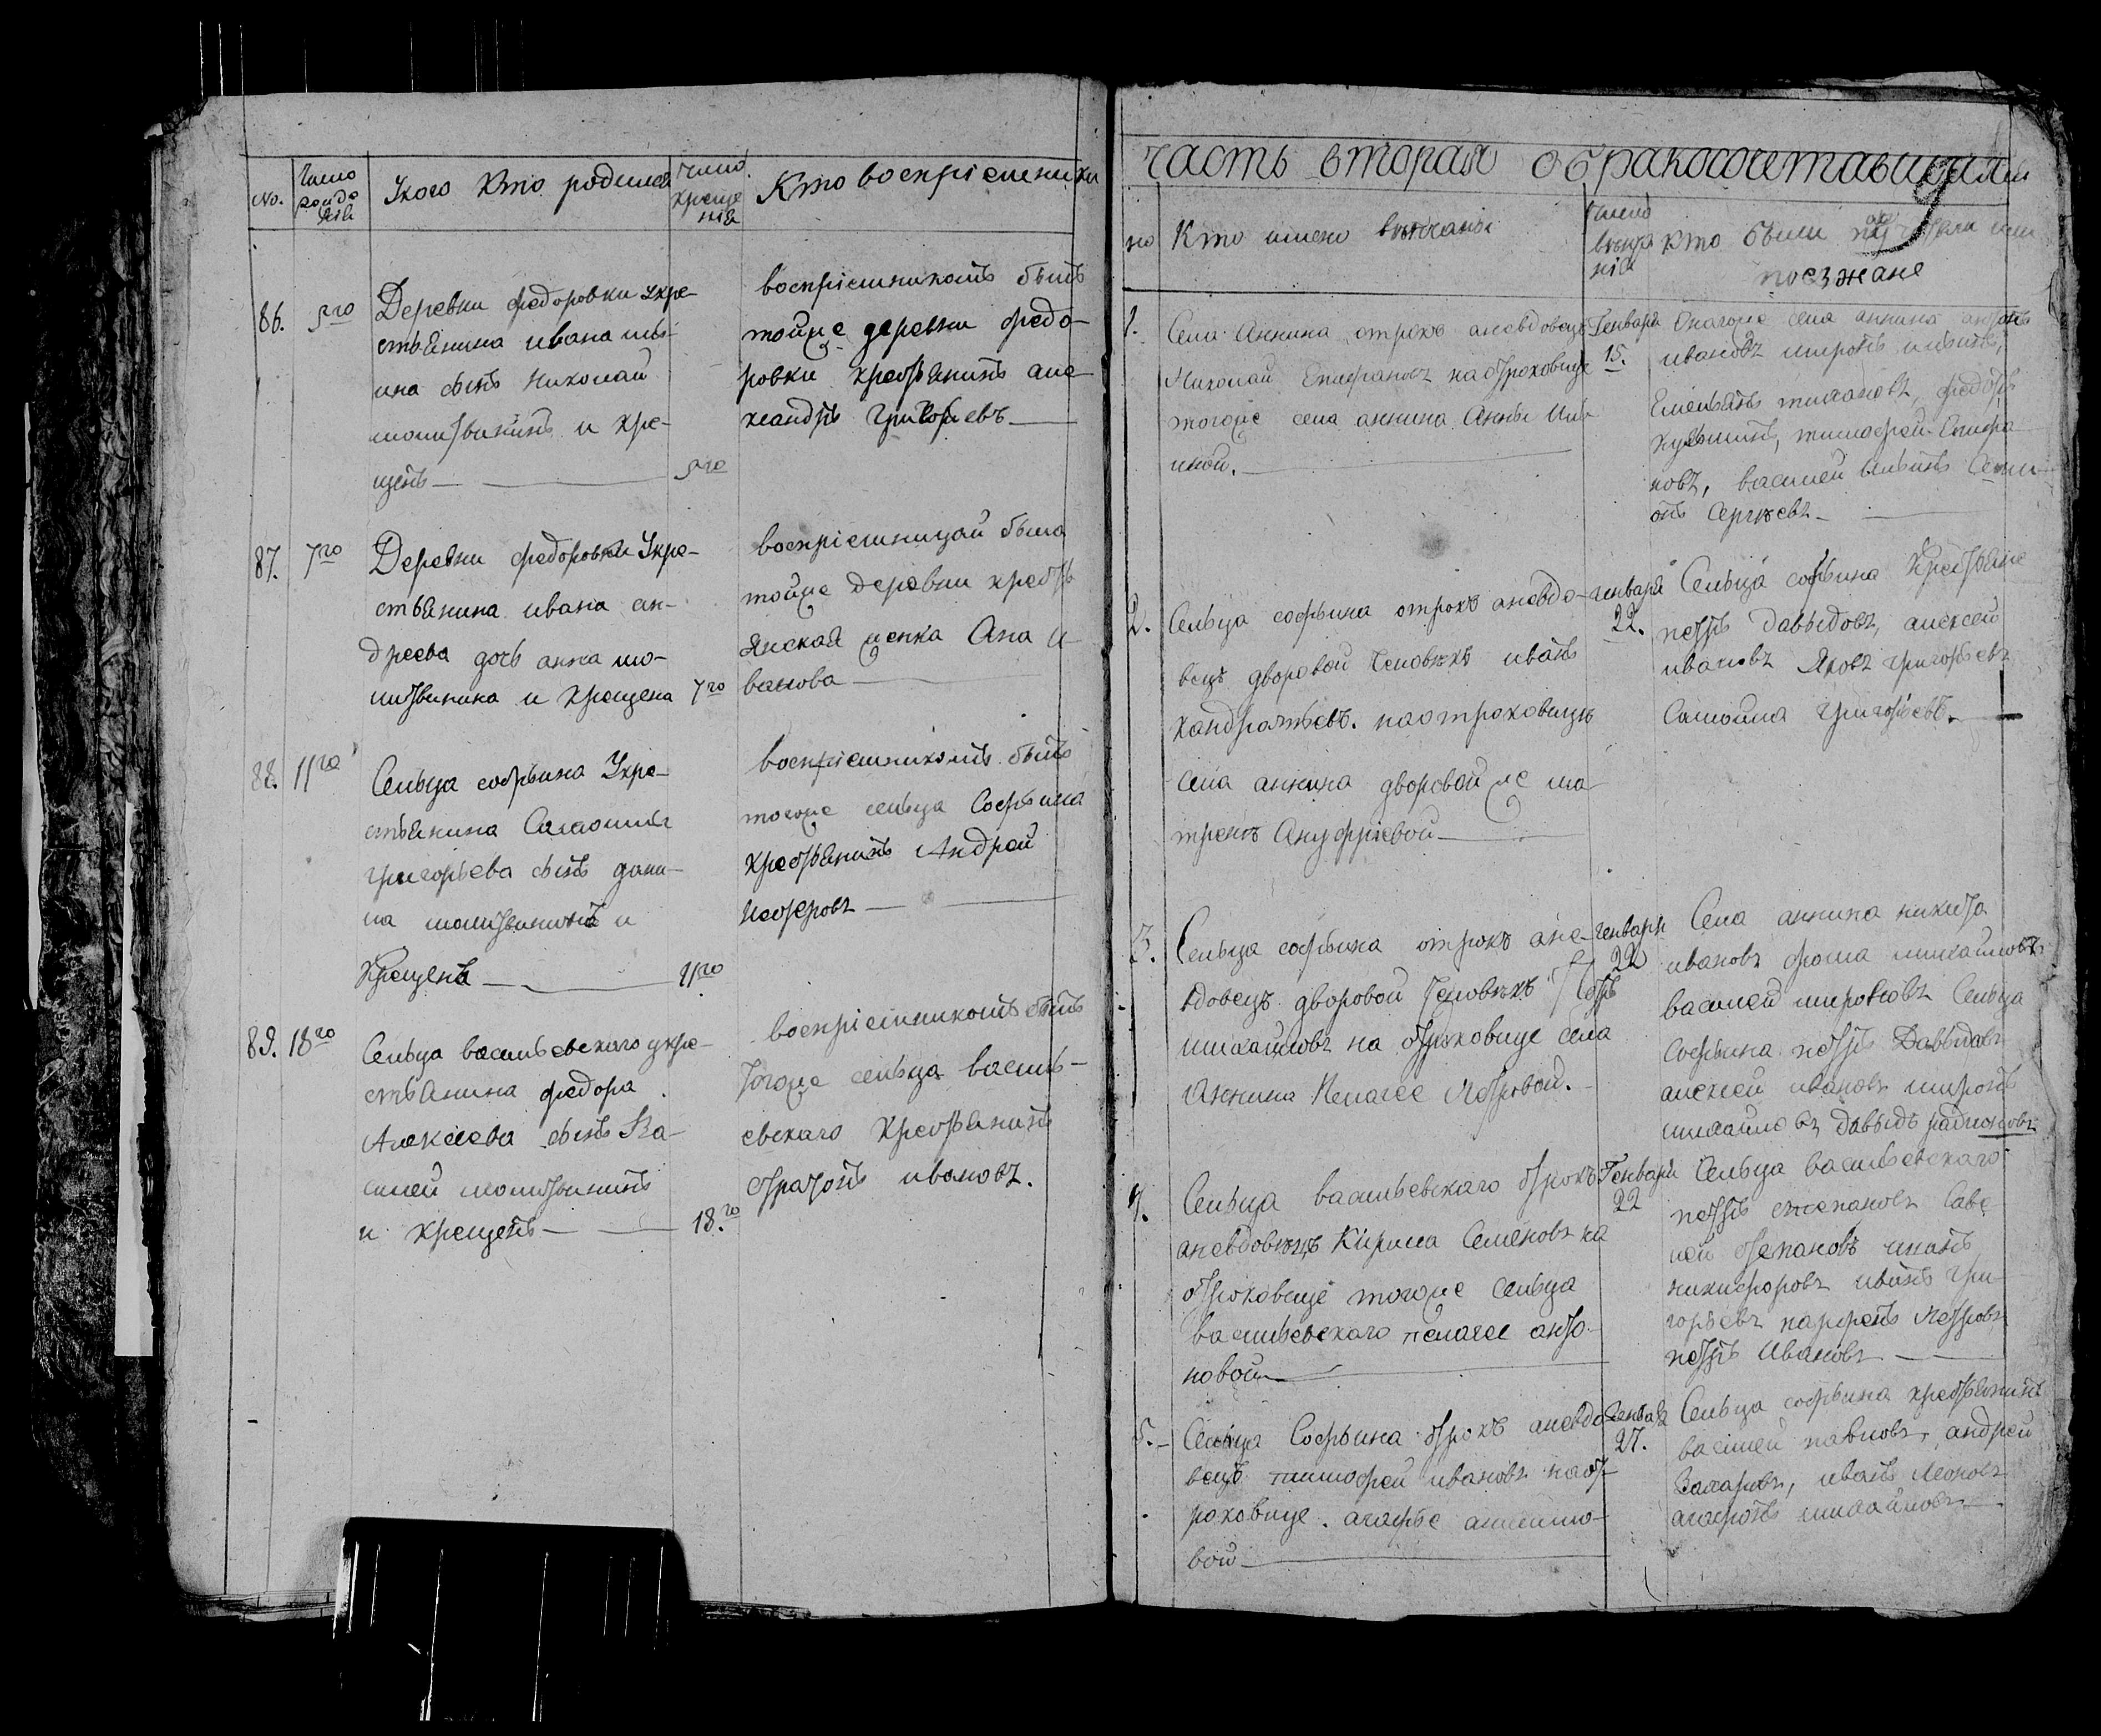 No.
Число рожде нія
Укого Кто родился
число креще нія
Кто воспріемники
86. 5го
Деревни федоровки укре-
стьянина ивана иль-
ина сынъ николай
молитвинънъ и кре-
щенъ 5го
воспріемникомъ былъ
тойже деревни федо-
ровки крестьянинъ але-
ксандръ Григорьевъ
87. 7го
Деревни федоровки укре-
стьянина ивана ан-
дреева дочь анна мо-
литвинина и крещена 7го
воспріемницай была
тойже деревни кресть
янская женка Ана и
ванова
88. 11го
Сельца софьина укре-
стьянина Самойлы
григорьева сынъ дани-
ла молитвинънъ и
Крещенъ 11го
воспріемникомъ былъ
тогоже сельца Софьина
крестьянинъ Андрей
89. 18го
Сельца васильевскаго укре-
стьянина федора
Алексеева сынъ Ва-
силей молитвинънъ
и крещенъ 18.го
воспріемникомъ былъ
тогоже сельца василь-
евскаго крестьянинъ
ивановъ.
часть вторая о бракосочетавшихся
9
но
Кто имено венчаны
число венча нія
кто были
поезжане
1.
Села Аннина отрокъ аневдовецъ
Николай Епифановъ наотроковице
тогоже села аннина Анны Иль
иной.
Генваря
15.
Онагоже села аннина антонъ
ивановъ миронъ ильинъ,
Емельянъ федотъ
тимофей Епифа
новъ, василей ильинъ Семи
онъ Сергеевъ
2.
Сельца софьина отрокъ аневдо-
вецъ дворовой человекъ иванъ
кандратьевъ. наотроковицъ
села аннина дворовой же ма
тренъ Ануфріевой
генваря
22.
Сельца софьина Крестьяне
петръ Давыдовъ, алексей
ивановъ Яковъ григорьевъ
Самойла григорьевъ.
3.
Сельца софьина отрокъ ане-
вдовецъ дворовой человекъ Петръ
михайловъ на отроковице села
Аннина Пелагее Петровой.
генваря
22
Села аннина никита
ивановъ фома михайловъ
василей мироновъ Сельца
Софьина петръ Давыдовъ
алексей ивановъ миронъ
михайловъ давыдъ радионовъ
4.
Сельца васильевскаго отрокъ
аневдовецъ Кирила Семеновъ на
отроковице тогоже сельца
васильевскаго пелагее анто-
новой
Генваря
22
Сельца васильевскаго
петръ степановъ Саве
лей степановъ
никифоровъ иванъ гри-
горьевъ парфенъ Петровъ
петръ Ивановъ
5.
Сельца Софьина отрокъ аневдо
вецъ тимофей ивановъ наот-
роковице. агафье
вой
Генваря
27.
Сельца софьина крестьянинъ
василей павловъ, андрей
Захаровъ, иванъ Леоновъ
агафонъ михайловъ